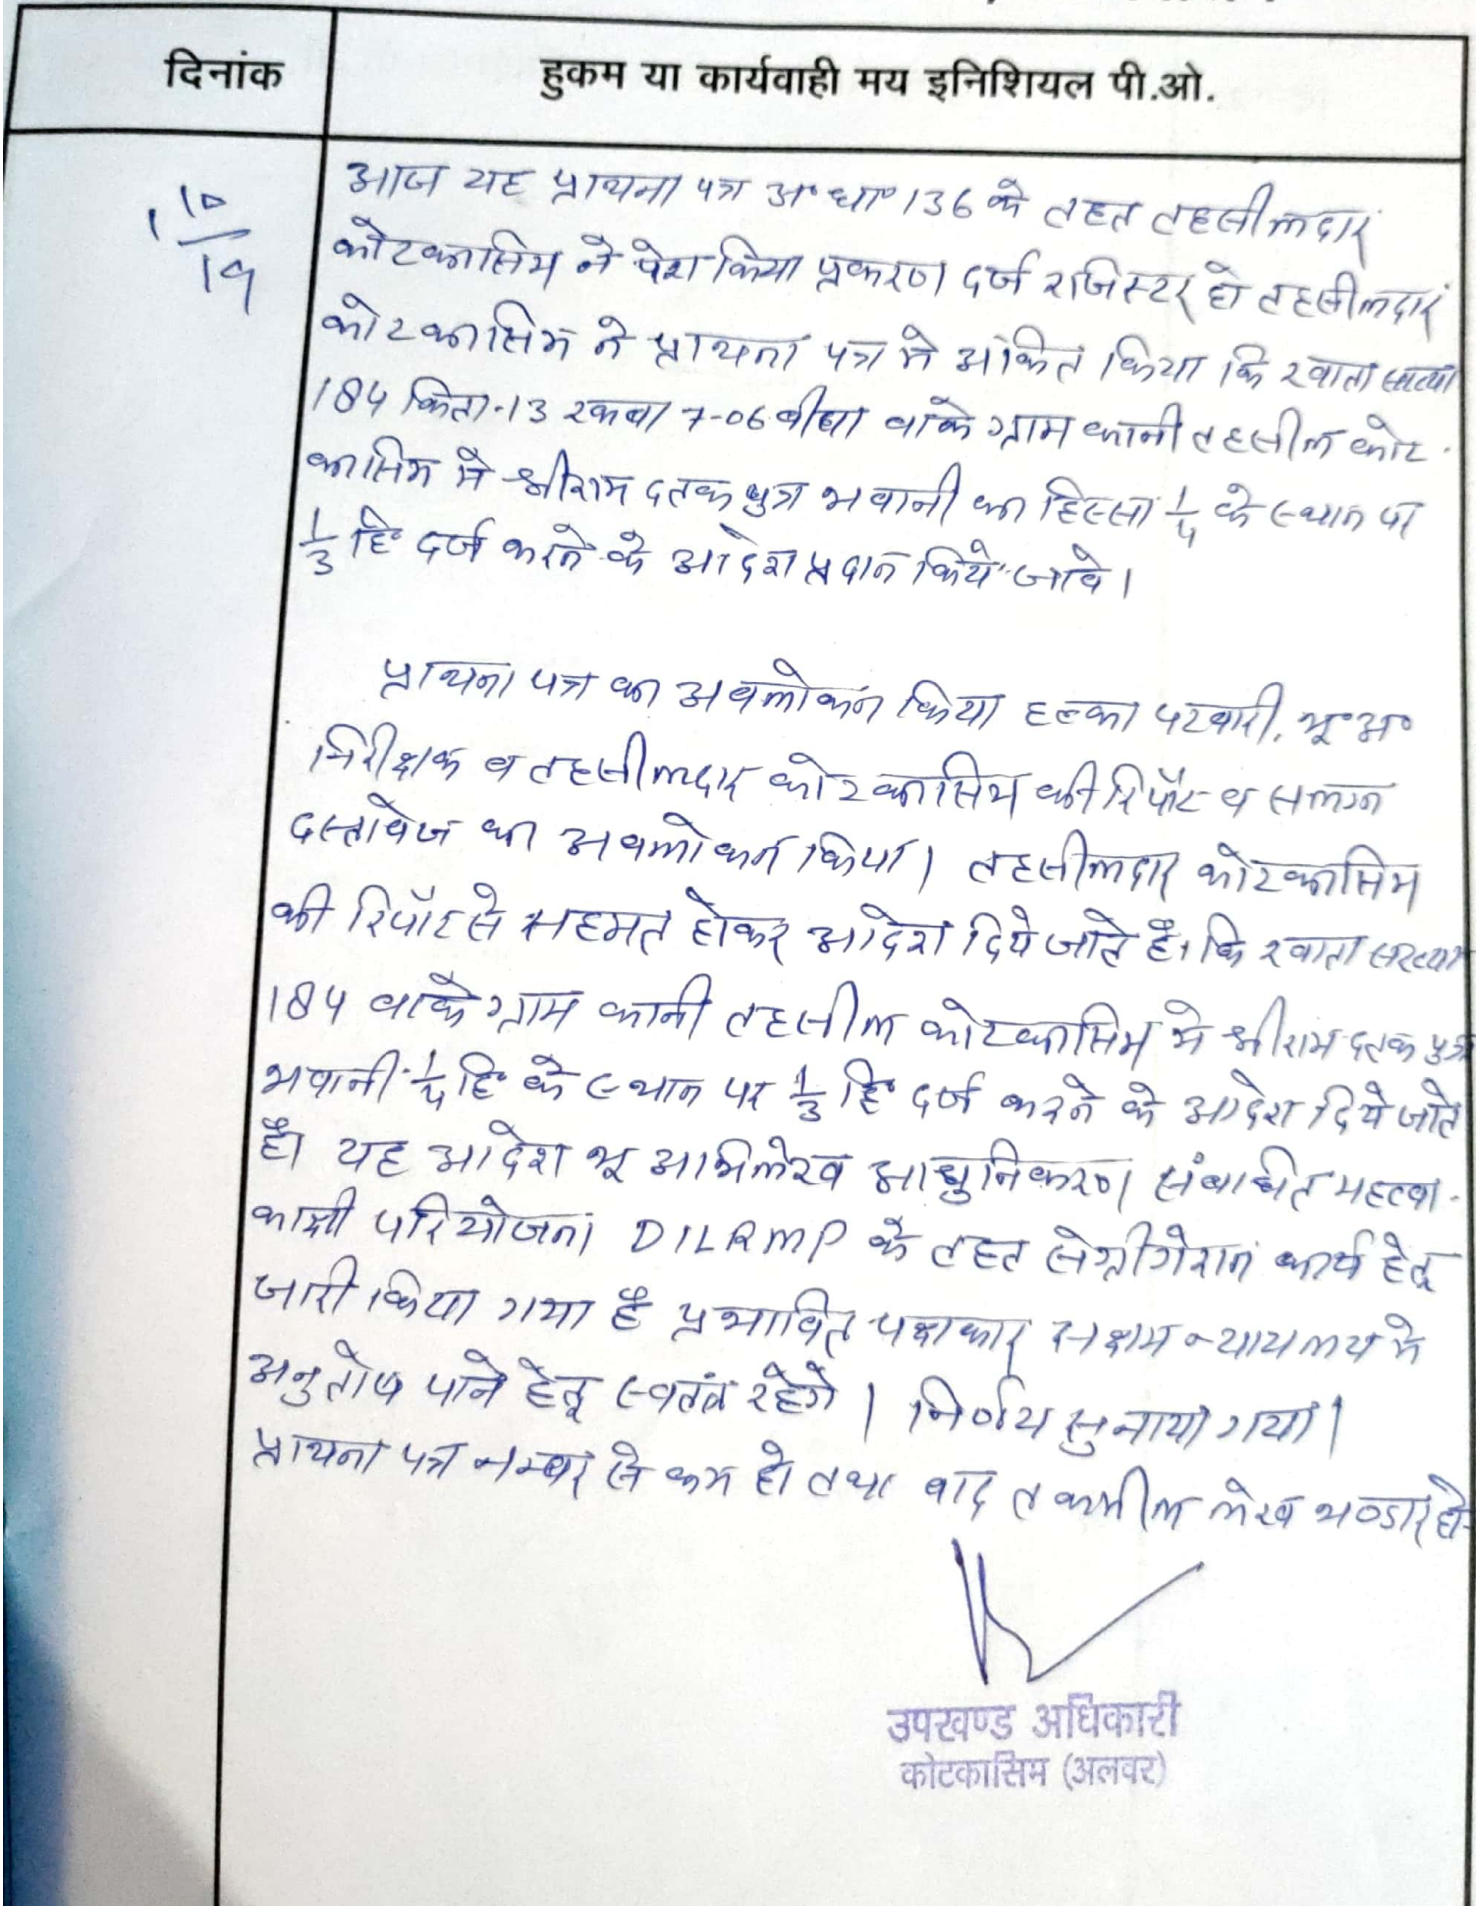 दिनांक
हुकम या कार्यवाही मय इनिशियल पी.ओ.
1 10/19
आज यह प्रायना पत्र अ॰ धा॰ 136 के तहत तहसीलदार
कोटकासिम ने पेश किया प्रकरण दर्ज रजिस्टर हो तहसीलदार
कोटकासिम ने प्रायना पत्र मे अंकित किया कि खाता संख्या
184 किता-13 रकबा 7-06 बीघा वाके ग्राम कानी तहसील कोट-
कासिम मे श्रीराम दतक पुत्र भवानी का हिस्सा 1/4 के स्थान पर
1/3 हि॰ दर्ज करने के आदेश प्रदान किये जावे।
प्रायना पत्र का अवलोकन किया हल्का पटवारी, भू॰ अ॰
निरीक्षक व तहसीलदार कोटकासिम की रिर्पोट व सलग्न
दस्तावेज का अवलोकन किया। तहसीलदार कोटकासिम
की रिर्पोट से सहमत होकर आदेश दिये जाते है। कि खाता संख्या
184 वाके ग्राम कानी तहसील कोटकासिम मे श्रीराम दतक पुत्र
भवानी 1/4 हि॰ के स्थान पर 1/3 हि॰ दर्ज करने के आदेश दिये जाते
है। यह आदेश भू अभिलेख आधुनिकरण संबाधित महत्वा-
कांक्षी परियोजना DILRMP के तहत सेग्रीगेशन कार्य हेतू
जारी किया गया है प्रभावित पक्षकार सक्षम न्यायलय मे
अनुतोष पाने हेतू स्वतंत्र रहेगे। निर्णय सुनाया गया।
प्रायना पत्र नम्बर से कम हो तथा बाद तकमील लेख भण्डार हो
उपखण्ड अधिकारी
कोटकासिम (अलवर)